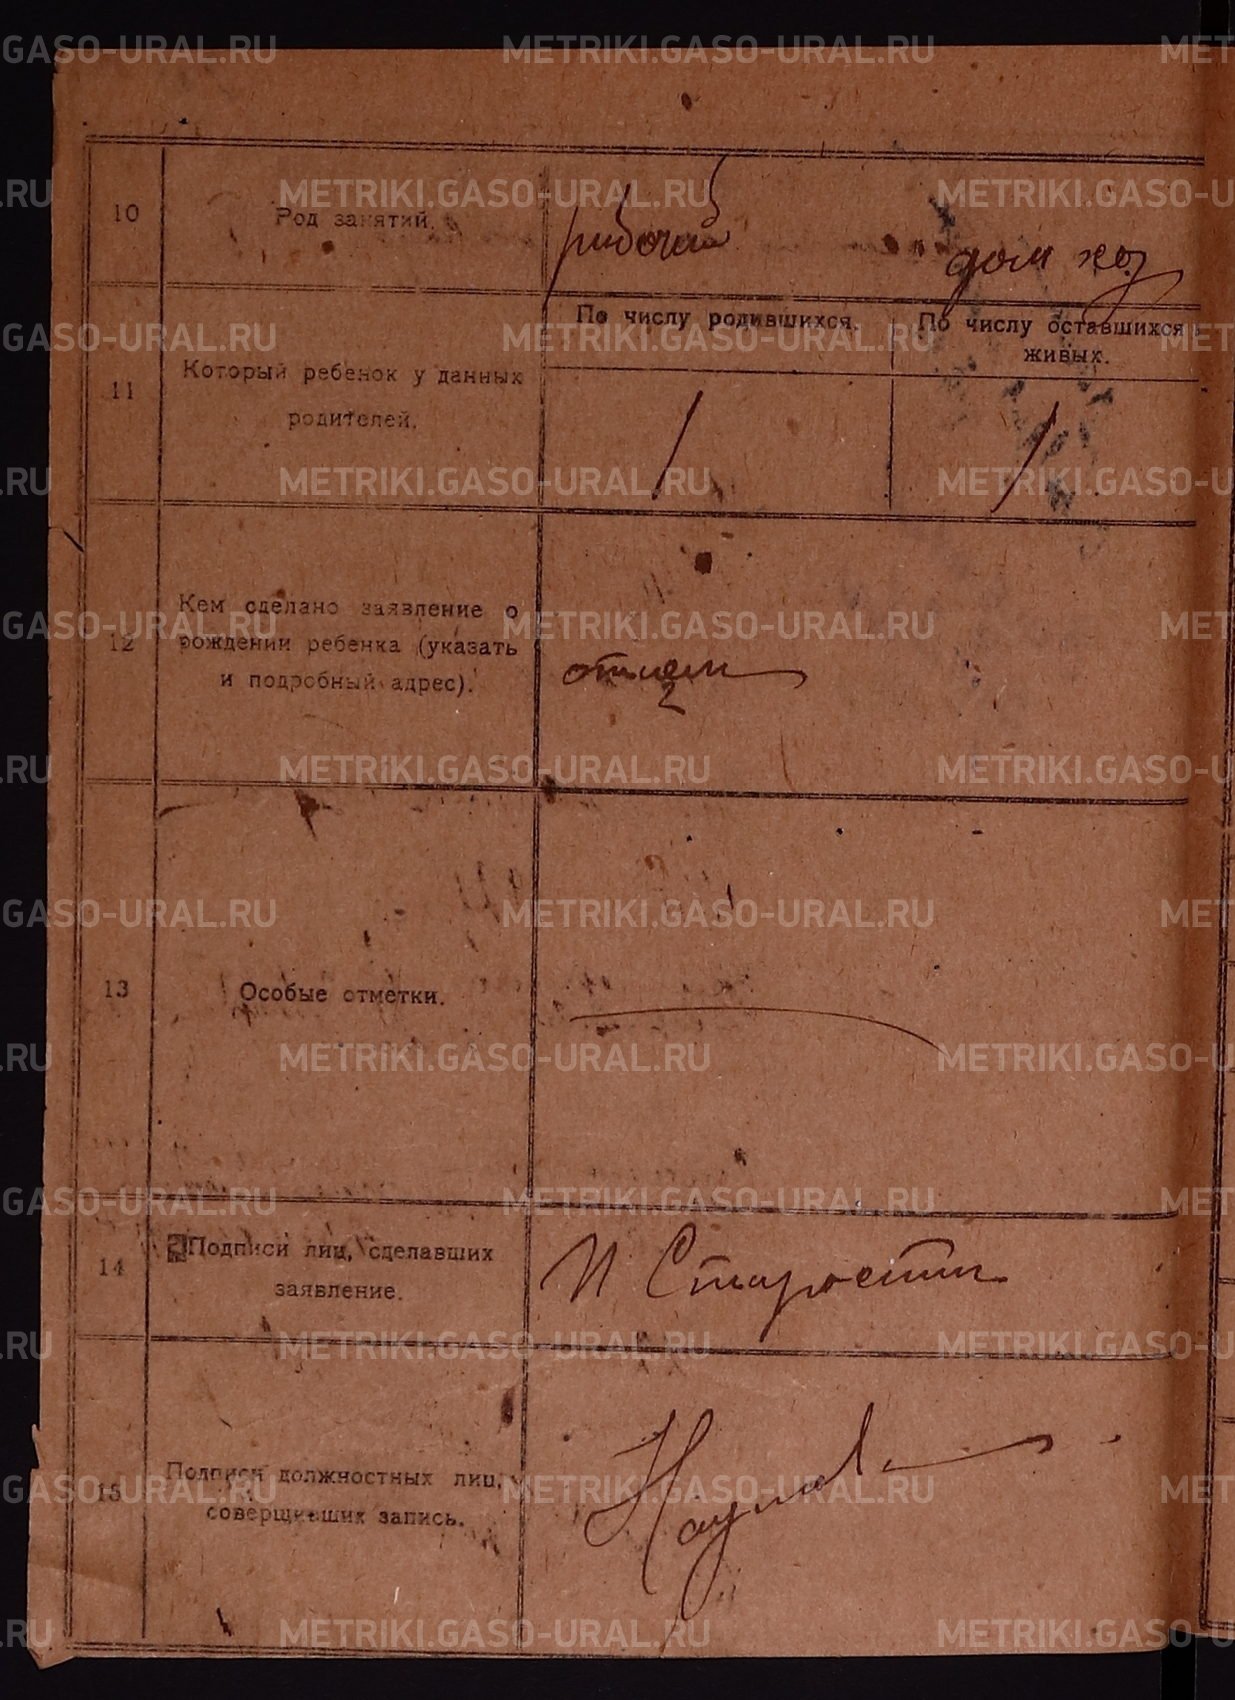 METRIKI.GASO-URAL.RU
10
Род занятий.
рабочий
дом хоз
11
Который ребенок у данных
родителей.
По числу родившихся.
По числу оставшихся
живых.
1
1
12
Кем сделано заявление о
рождении ребенка (указать
и подробный адрес).
отцем
13
Особые отметки.
14
Подписи лиц, сделавших
заявление.
И Старостин
15
Подписи должностных лиц,
совершивших запись.